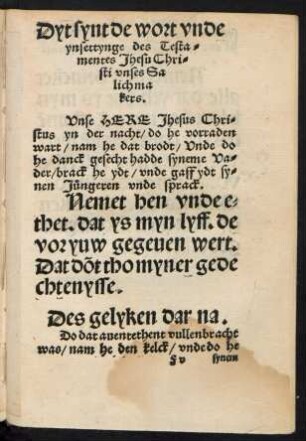 Dyt synt de wort vnde
ynsettynge des Testa-
mentes Jhesu Chri-
sti vnses Sa
lichma
kers.
Vnse HERE Jhesus Chri-
stus yn der nacht/ do he vorraden
wart/ nam he dat brodt/ Vnde do
he danck gesecht hadde syneme Va-
der/ brack he ydt/ vnde gaff ydt sy-
nen Jüngeren vnde sprack.
Nemet hen vnde e-
thet. dat ys myn lyff. de
vor yuw gegeuen wert.
Dat döt tho myner gede
chtenysse.
Des gelyken dar na.
Do dat auentethent vullenbracht
was/ nam he den kelck/ vnde do he
F v synem